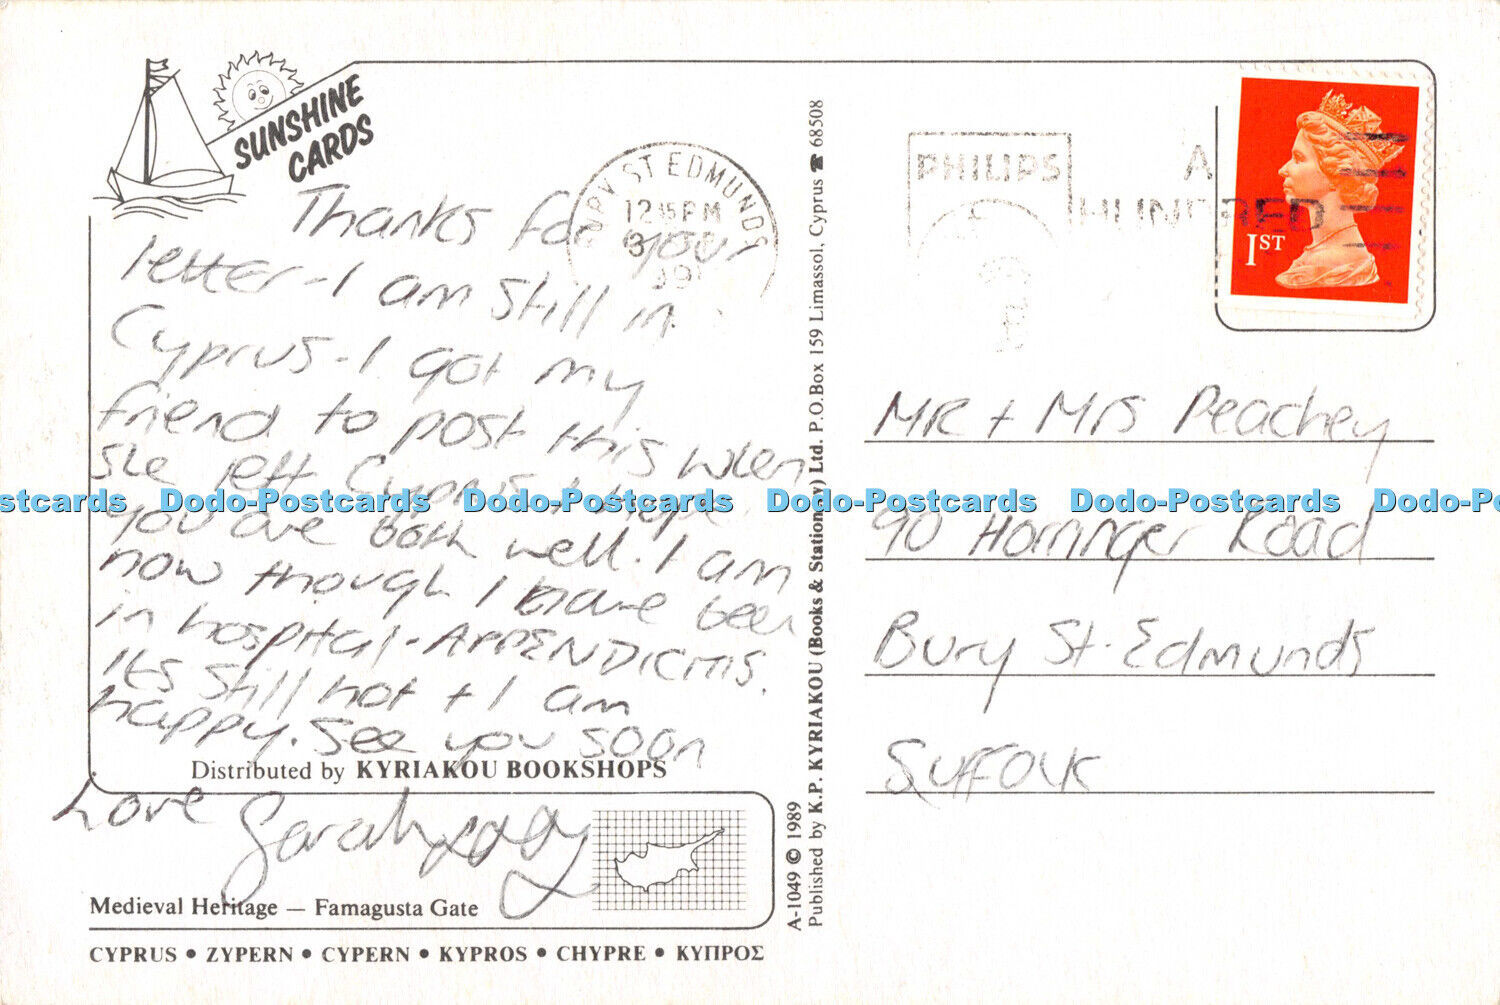 SUNSHINE
CARDS
Thanks for your
letter-I am still in
Cyprus-I got my
friend to post this when
she left Cyprus. I hope
you are both well. I am
now though I have been
in hospital-APPENDICITIS.
Its still hot + I am
happy. See you soon
Love Sarah
Distributed by KYRIAKOU BOOKSHOPS
Medieval Heritage — Famagusta Gate
CYPRUS • ZYPERN • CYPERN • KYPROS • CHYPRE • ΚΥΠΡΟΣ
A-1049 © 1989
Published by K.P. KYRIAKOU (Books & Stationery) Ltd. P.O.Box 159 Limassol, Cyprus ☎ 68508
BURY ST EDMUNDS
12 15 PM
PHILIPS
A
HUNDRED
1ST
MR + MRS Peachey
90 Horringer Road
Bury St. Edmunds
Suffolk
stcards Dodo-Postcards Dodo-Postcards Dodo-Postcards Dodo-Postcards Dodo-Post